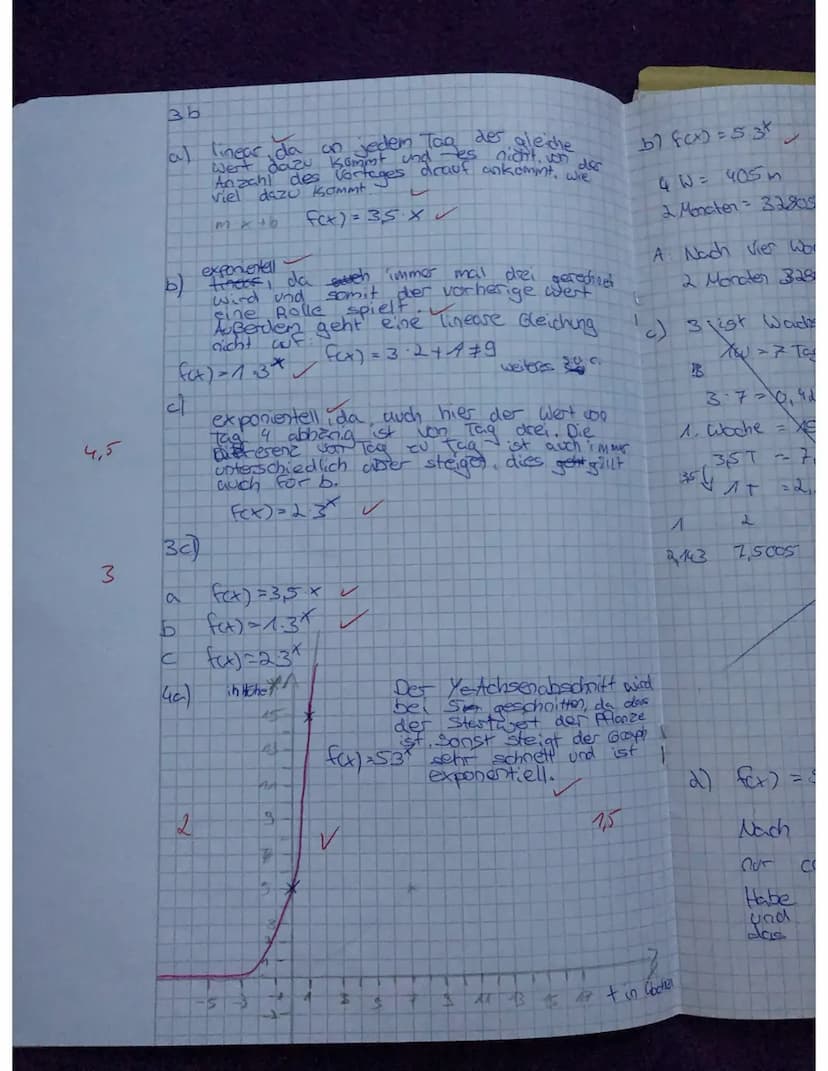 3b
a) linear, da an jedem Tag der gleiche
Wert dazu kommt und es nicht von der
Anzahl des Vortages drauf ankommt, wie
viel dazu kommt
m x + b f(x) = 3,5 · x
b) exponentell
da immer mal drei gerechnet
wird und somit der vorherige Wert
eine Rolle spielt.
Außerdem geht eine lineare Gleichung
nicht auf:
f(x) = 3 · 2 + 1 ≠ 9
f(x) = 1 · 3^x
weiteres
c)
exponentell, da auch hier der Wert von
Tag 4 abhänig ist von Tag drei. Die
Differenz von Tag zu Tag ist auch immer
unterschiedlich aber steigend, dies gillt
auch für b.
4,5
f(x) = 2 · 3^x
3c)
3
a f(x) = 3,5 · x
b f(x) = 1 · 3^x
c f(x) = 2 3^x
4a) in Höhe
Der Y-Achsenabschnitt wird
bei 5 geschnitten, da das
der Startwert der Pflanze
ist. Sonst steigt der Graph
sehr schnell und ist
exponentiell.
f(x) = 5 3^x
2
1,5
15
9
7
5
3
1
-5 -3 -1 1 3 5 7 9 11 13 15 17 t in
b) f(x) = 5 3^x
4 W = 405 m
2 Monaten = 32805
A. Nach vier Wo
2 Monaten 328
c) 3 ist Wachs
= 7 Tag
3 · 7 = 0,42
1. Woche =
3,5 T = 7,
1 T = 2,
1 2
2,143 7,5005
d) f(x) =
Nach
nur
Habe
und
das